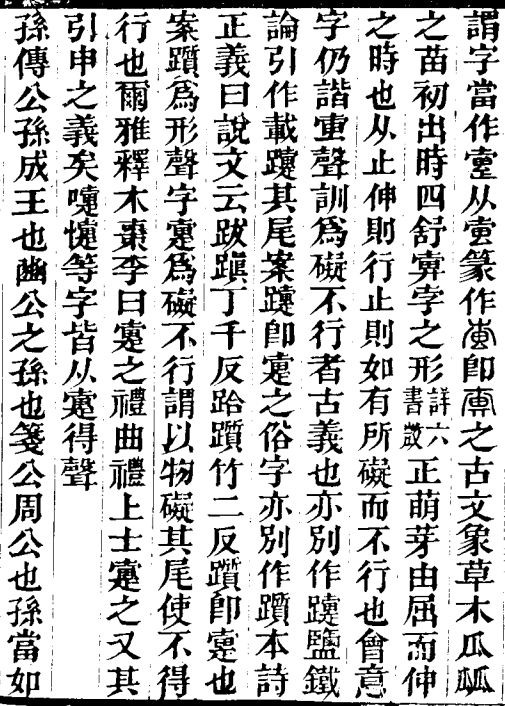 謂字當作疐从叀篆作𤰔卽叀之古文象草木瓜瓞
之苗初出時四舒䨥孛之形詳六書㪚正萌芽由屈而伸
之時也从止伸則行止則如有所礙而不行也會意
字仍諧叀聲訓爲礙不行者古義也亦別作躓鹽鐵
論引作載躓其尾案躓卽疐之俗字亦別作躓本詩
正義曰說文云跋蹎丁千反跲躓竹二反躓卽疐也
案躓爲形聲字疐爲礙不行謂以物礙其尾使不得
行也爾雅釋木棗李曰疐之禮曲禮上士疐之又其
引申之義矣嚏懥等字皆从疐得聲
孫傳公孫成王也豳公之孫也箋公周公也孫當如